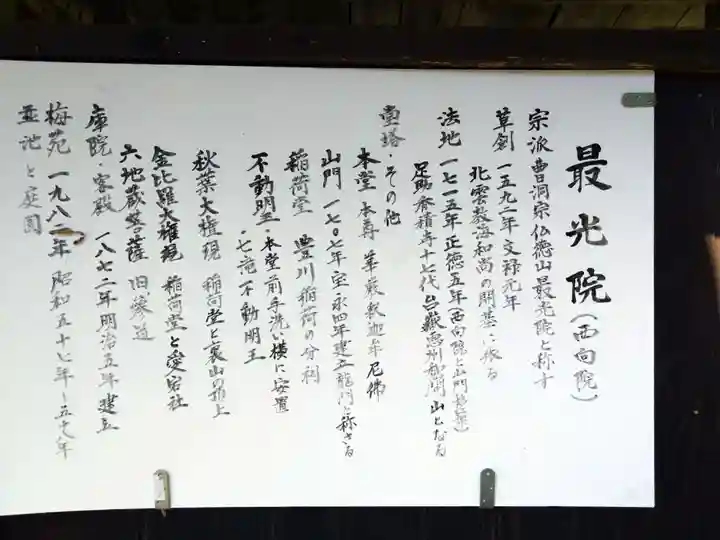 最光院（西向院）
宗派 曹洞宗 仏徳山最光院と称す
草創 一五九二年 文禄元年
北雲教海和尚の開基に依る
法地 一七一五年 正徳五年（西向院
足助 香積寺十七代 開山となる
堂塔・その他
本堂 本尊 華厳釈迦牟尼佛
山門 一七〇七年 宝永四年建立 龍門と称さる
稲荷堂 豊川稲荷の分利
不動明王・本堂前手洗い横に安置
・七滝不動明王
秋葉大権現 稲荷堂と裏山の頂上
金比羅大権現 稲荷堂と愛宕社
六地蔵菩薩 旧参道
庫院・客殿 一八七二年 明治五年建立
梅苑 一九八二年 昭和五十七年～五十七年
並池と庭園